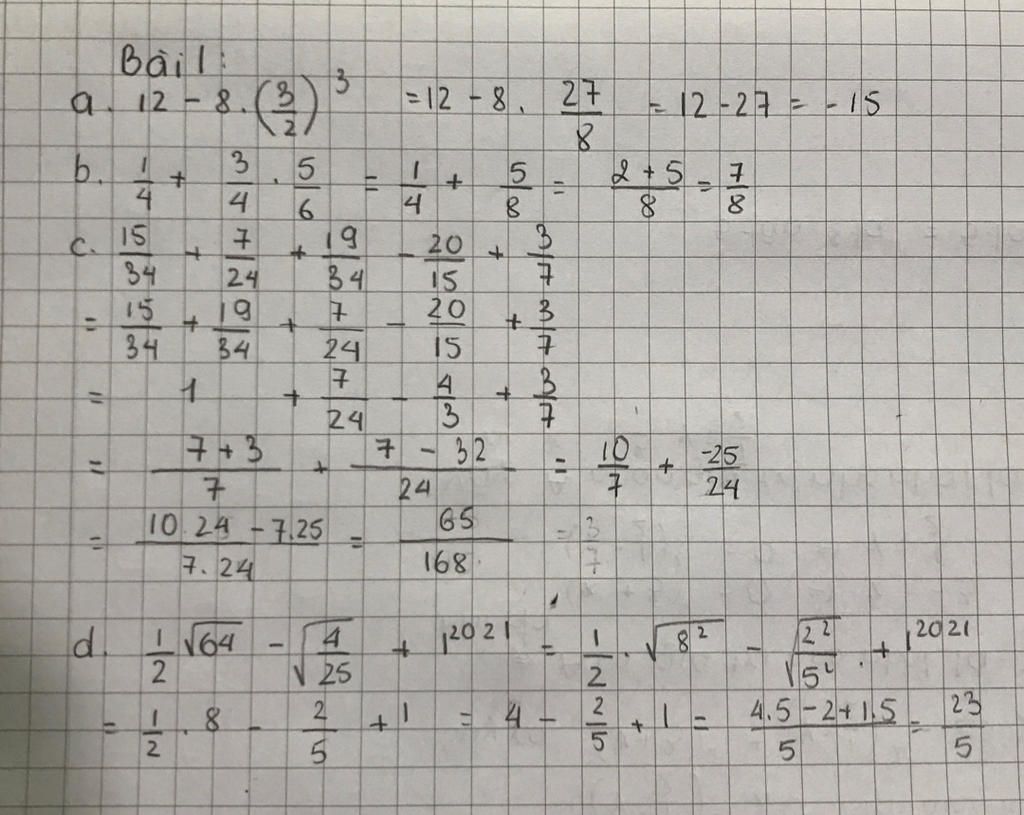 Bài 1:
a. 12 - 8 . (3/2)^3 = 12 - 8 . 27/8 = 12 - 27 = - 15
b. 1/4 + 3/4 . 5/6 = 1/4 + 5/8 = (2 + 5)/8 = 7/8
c. 15/34 + 7/24 + 19/34 - 20/15 + 3/7
= 15/34 + 19/34 + 7/24 - 20/15 + 3/7
= 1 + 7/24 - 4/3 + 3/7
= (7 + 3)/7 + (7 - 32)/24 = 10/7 + -25/24
= (10.24 - 7.25)/(7.24) = 65/168
d. 1/2 √64 - √(4/25) + 1^2021 = 1/2 . √(8^2) - √(2^2/5^2) . + 1^2021
= 1/2 . 8 - 2/5 + 1 = 4 - 2/5 + 1 = (4.5 - 2 + 1.5)/5 = 23/5